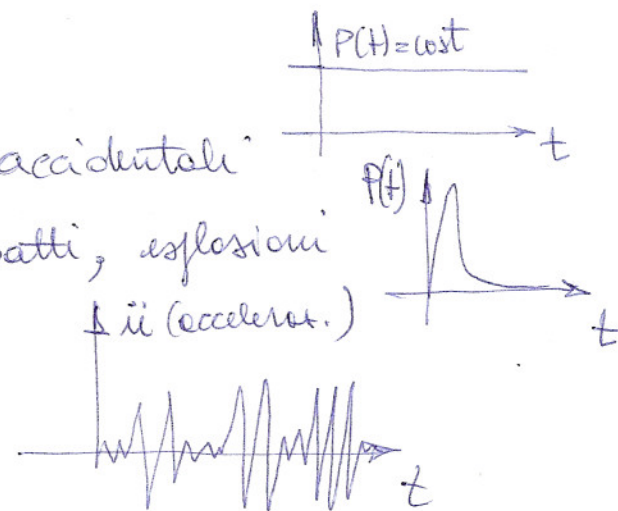 P(t)=cost
t
accidentali
P(t)
atti, esplosioni
t
ü (accelerat.)
t